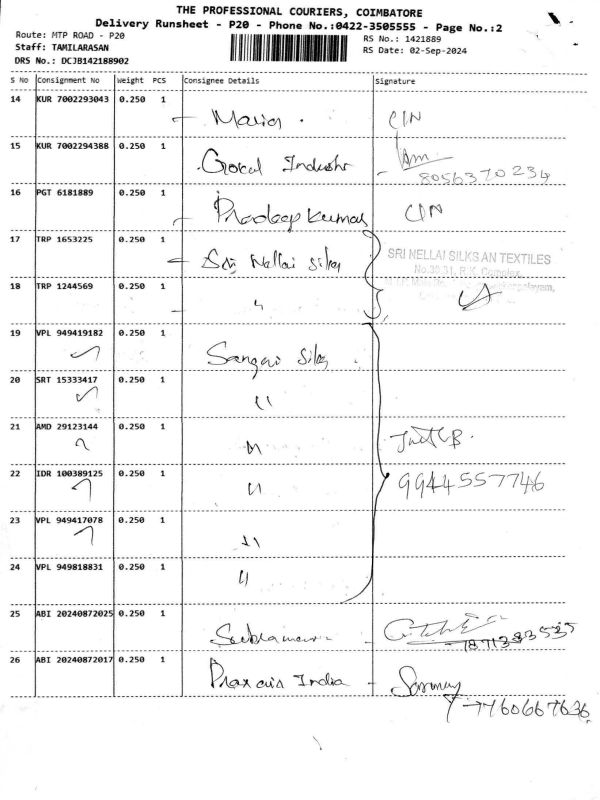 THE PROFESSIONAL COURIERS, COIMBATORE
Delivery Runsheet - P20 - Phone No.:0422-3505555 - Page No.:2
Route: MTP ROAD - P20
RS No.: 1421889
Staff: TAMILARASAN
RS Date: 02-Sep-2024
DRS No.: DCJB142188902
S No Consignment No Weight PCS Consignee Details Signature
14 KUR 7002293043 0.250 1
CIN
15 KUR 7002294388 0.250 1 Gocul
8056370234
16 PGT 6181889 0.250 1 Pradeep Kumar CIN
17 TRP 1653225 0.250 1 Sri Nellai Silks
SRI NELLAI SILKS AN TEXTILES
No.30,31, R.K. Complex,
18 TRP 1244569 0.250 1 "
19 VPL 949419182 0.250 1 Sangavi Silks
20 SRT 15333417 0.250 1 "
21 AMD 29123144 0.250 1 "
22 IDR 100389125 0.250 1 " 9944557746
23 VPL 949417078 0.250 1 "
24 VPL 949818831 0.250 1 "
25 ABI 20240872025 0.250 1
26 ABI 20240872017 0.250 1 Praxair India
7760667636